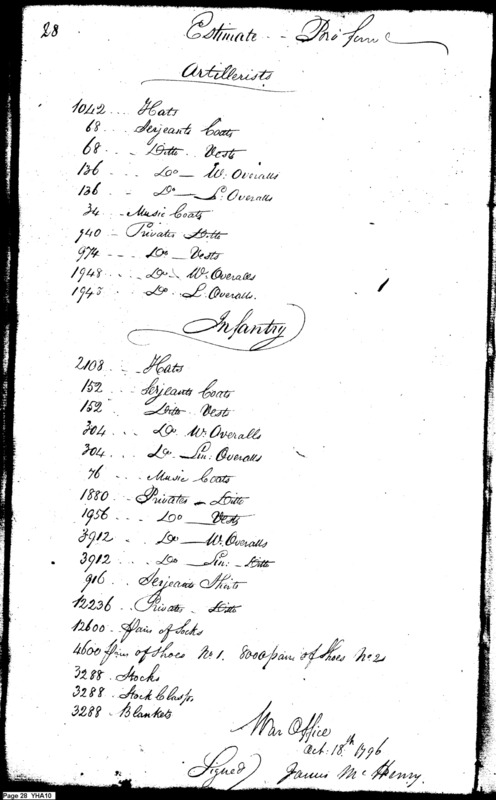 28 Estimate -- Pro forma
Artillerists
1042 .... Hats
68 .. Serjeants Coats
68 .. Ditto .. Vests
136 Do — W: Overalls
136 .. Do — L: Overalls
34 .. Music Coats
940 — Privates Ditto
974 — .. Do — Vests
1948 .. Do. W: Overalls
1948 Do .. L. Overalls.
Infantry
2108 .. — Hats
152 .... Serjeants Coats
152 .... Ditto Vests
304 ... Do W: Overalls
304 ... Do. Lin: Overalls
76 .. Music Coats
1880 .. Privates — Ditto
1956 .. Do — Vests
3912 .. Do — W. Overalls
3912 .. Do — Lin: Ditto
916 .. Serjeants Shirts
12236 .. Privates .. Ditto
12600 .. Pairs of Socks
4600 Pairs of Shoes No 1. 8000 pairs of Shoes No 2
3288 Stocks
3288 Stock Clasps
3288 Blankets
War Office
Oct. 18th 1796
Signed James McHenry.
Page 28 YHA10